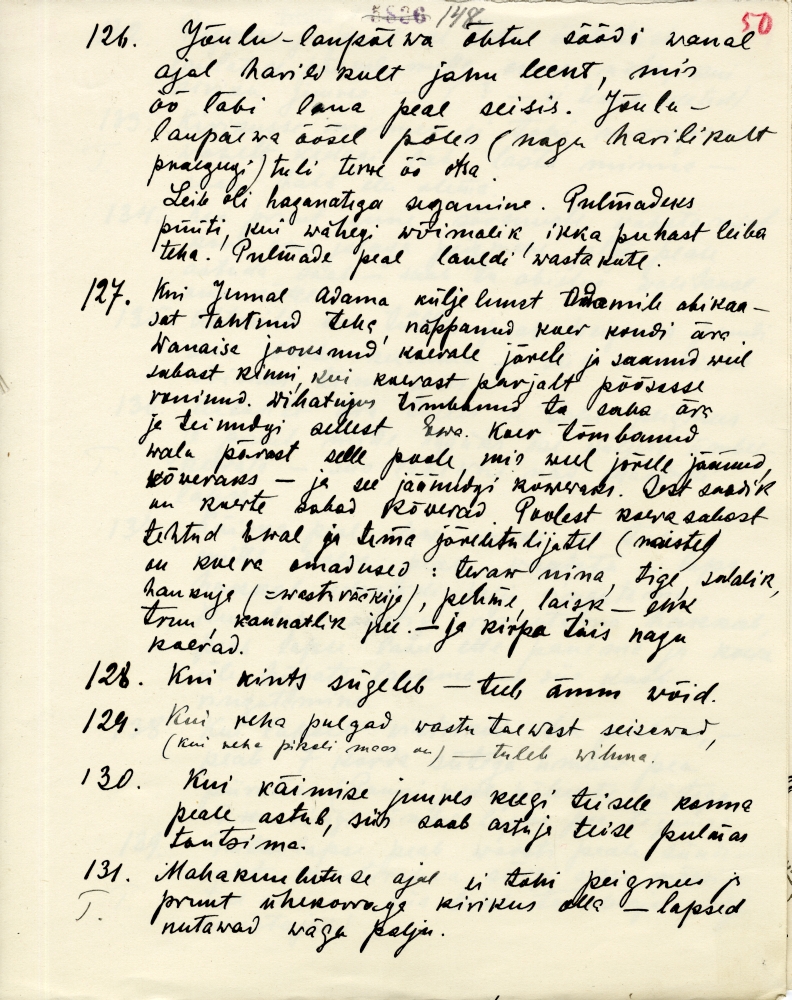 5826 148
50
126. Jõulu-laupäewa õhtul söödi wanal
ajal harilikult jahu leent, mis
öö läbi laua peal seisis. Jõulu-
laupäewa öösel põles (nagu harilikult
praegugi) tuli terwe öö otsa.
Leib oli haganatega segamine. Pulmadeks
püüti, kui wähegi wõimalik, ikka puhast leiba
teha. Pulmade peal lauldi wastakute.
127. Kui Jumal Adama külje luust Adamile abikaa-
sat tahtnud teha, näppanud koer kondi ära.
Wanaisa jooksnud koerale järele ja saanud weel
sabast kinni, kui koerast parjalt põõsasse
roninud. Wihatujus tõmbanud ta saba ära
ja teinudgi sellest Ewa. Koer tõmbanud
walu pärast selle poole, mis weel järele jäänud,
kõweraks — ja see jäänudgi kõweraks. Sest saadik
on koerte sabad kõwerad. Poolest koera sabast
tehtud Ewal ja tema järeltulijatel (naistel)
on koera omadused: teraw nina, tige, salalik,
haukuja (= wasturääkija), pehme, laisk — ehk
truu, kannatlik jne. — ja kirpa täis nagu
koerad.
128. Kui kints sügeleb — teeb ämm wõid.
129. Kui reha pulgad wastu taewast seisawad,
(kui reha pikali maas on) — tuleb wihma.
130. Kui käimise juures keegi teisele kanna
peale astub, siis saab astuja teise pulmas
tantsima.
131. Mahakuulutuse ajal ei tohi peigmees ja
I. pruut ühekorraga kirikus olla — lapsed
nutawad wäga palju.